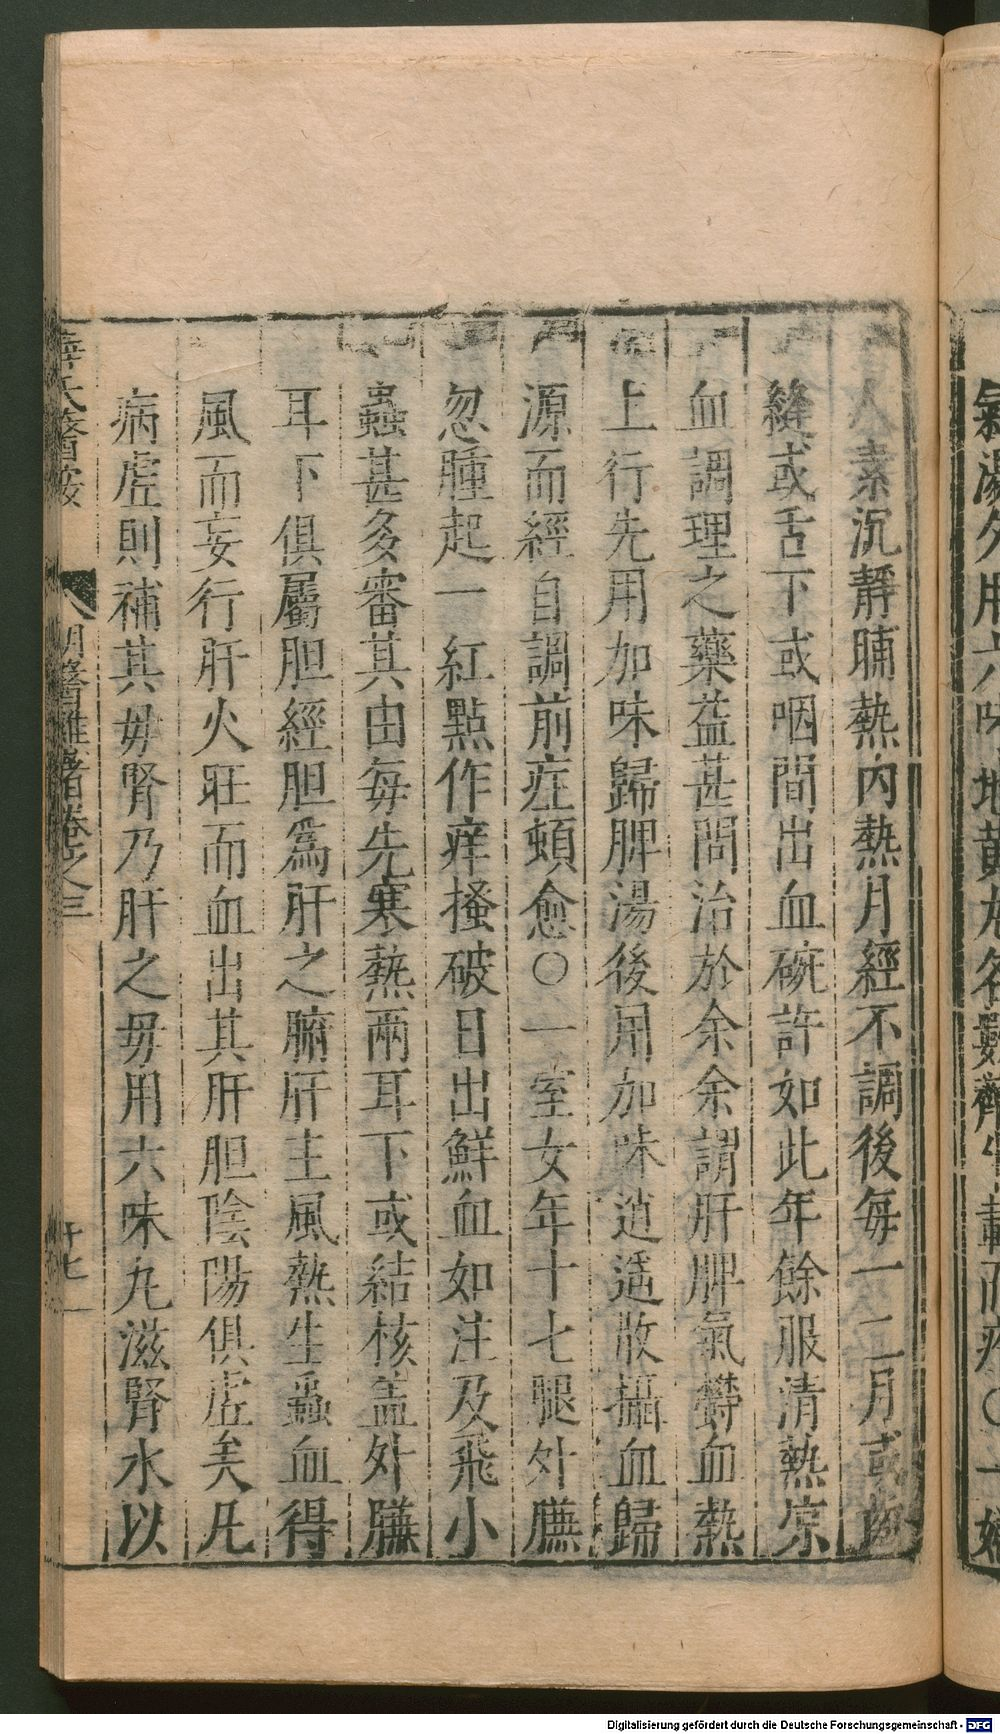 氣湯久服六味地黃丸各數劑
而㾗〇一婦
人素沉靜晡熱内熱月經不調後每一二月或齒
縫或舌下或咽間出血碗許如此年餘服清熱凉
血調理之藥益甚問治於余余謂肝脾氣欎血熱
上行先用加味歸脾湯後用加味逍遥散攝血歸
源而經自調前症頓愈〇一室女年十七腿外臁
忽腫起一紅點作痒搔破日出鮮血如注及飛小
蟲甚多審其由每先寒熱兩耳下或結核盖外臁
耳下俱屬胆經胆爲肝之腑肝主風熱生蟲血得
風而妄行肝火旺而血出其肝胆陰陽俱虚矣凡
病虚則補其毋腎乃肝之毋用六味丸滋腎水以
薛氏醫按
明醫雜著卷之三
廿七
Digitalisierung gefördert durch die Deutsche Forschungsgemeinschaft - DFG